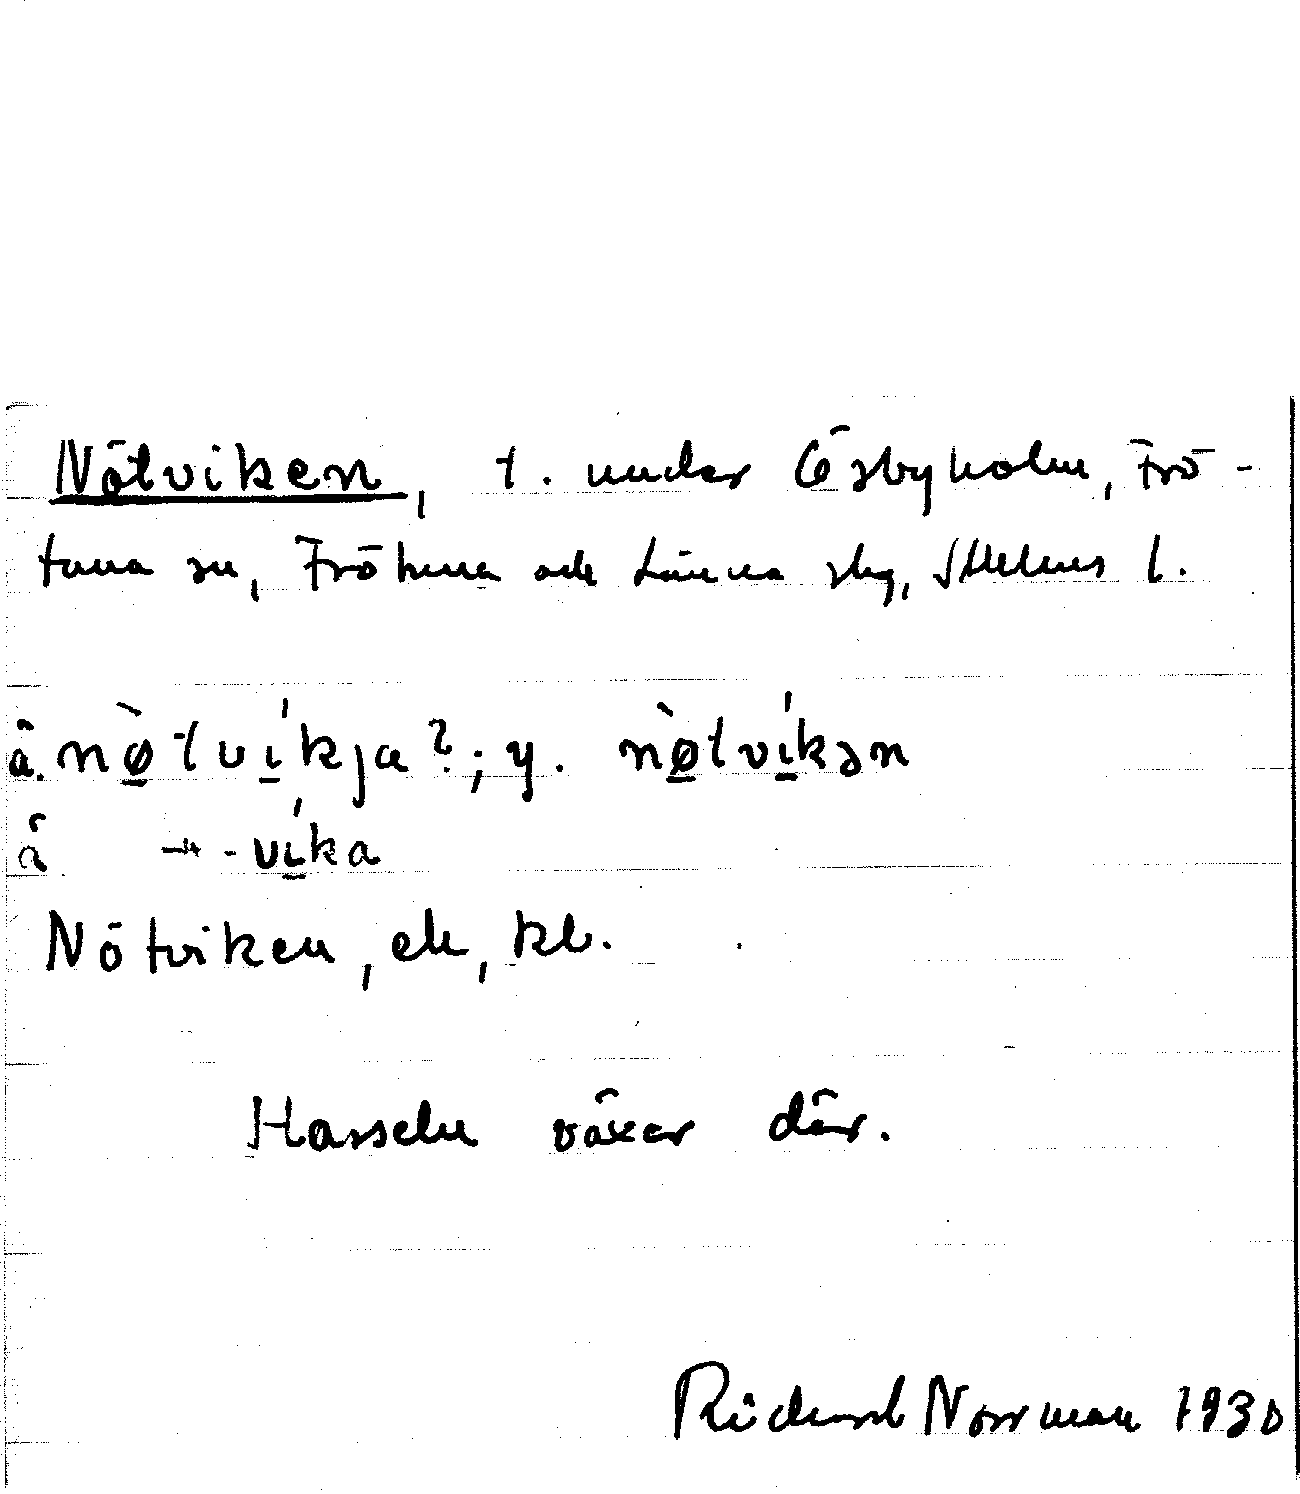 Nötviken, t. under Ösbyholm, Frö-
tuna sn, Frötuna och Länna skg, Sthlms l.
å. nø̀tvíkja?; y. nø̀tvíkən
å -"-víka
Nötviken, ek, kb.
Hasseln växer där.
Rickard Norrman 1930